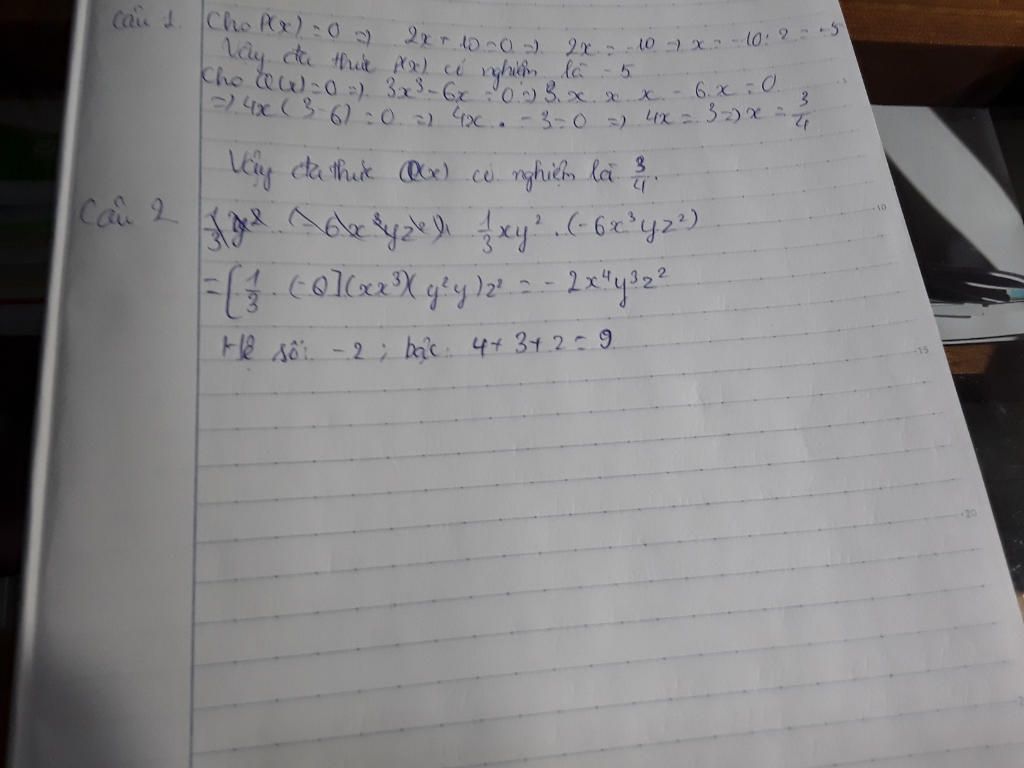 Câu 1. Cho P(x) = 0 => 2x + 10 = 0 => 2x = -10 => x = -10 : 2 = -5
Vậy đa thức P(x) có nghiệm là -5
Cho Q(x) = 0 => 3x³ - 6x = 0 => 3. x x x - 6. x = 0
=> 4x (3-6) = 0 => 4x . -3 = 0 => 4x = 3 => x = 3/4
Vậy đa thức Q(x) có nghiệm là 3/4.
Câu 2 1/3 xy² . (-6x³yz²)
= [1/3 (-6)](xx³)(y²y)z² = -2x⁴y³z²
Hệ số: -2 ; bậc: 4+3+2=9
10
15
20